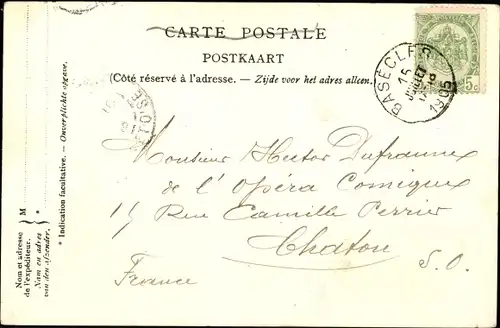 CARTE POSTALE
POSTKAART
(Côté réservé à l'adresse. – Zijde voor het adres alleen.)
BASÈCLES
15
JUILLET
1905
5
Monsieur Hector Dufranne
de l'Opéra Comique
15 Rue Camille Perrier
Chatou
S. O.
France
* Indication facultative. – Onverplichte opgave.
M
*
Nom et adresse
de l'expéditeur.
Naam en adres
van den afzender.